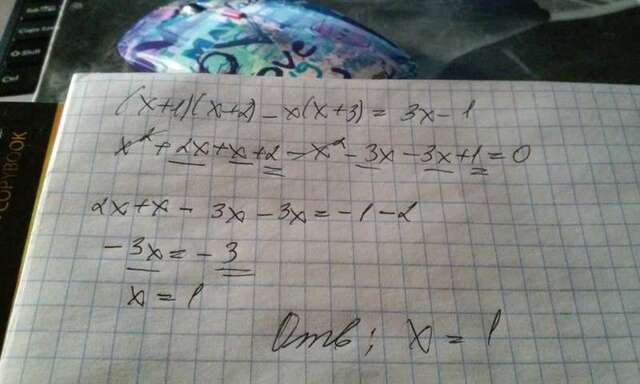 Ctrl
COPYBOOK
(x+1)(x+2) - x(x+3) = 3x - 1
x² + 2x + x + 2 - x² - 3x - 3x + 1 = 0
2x + x - 3x - 3x = -1 - 2
- 3x = - 3
x = 1
Отв; x = 1